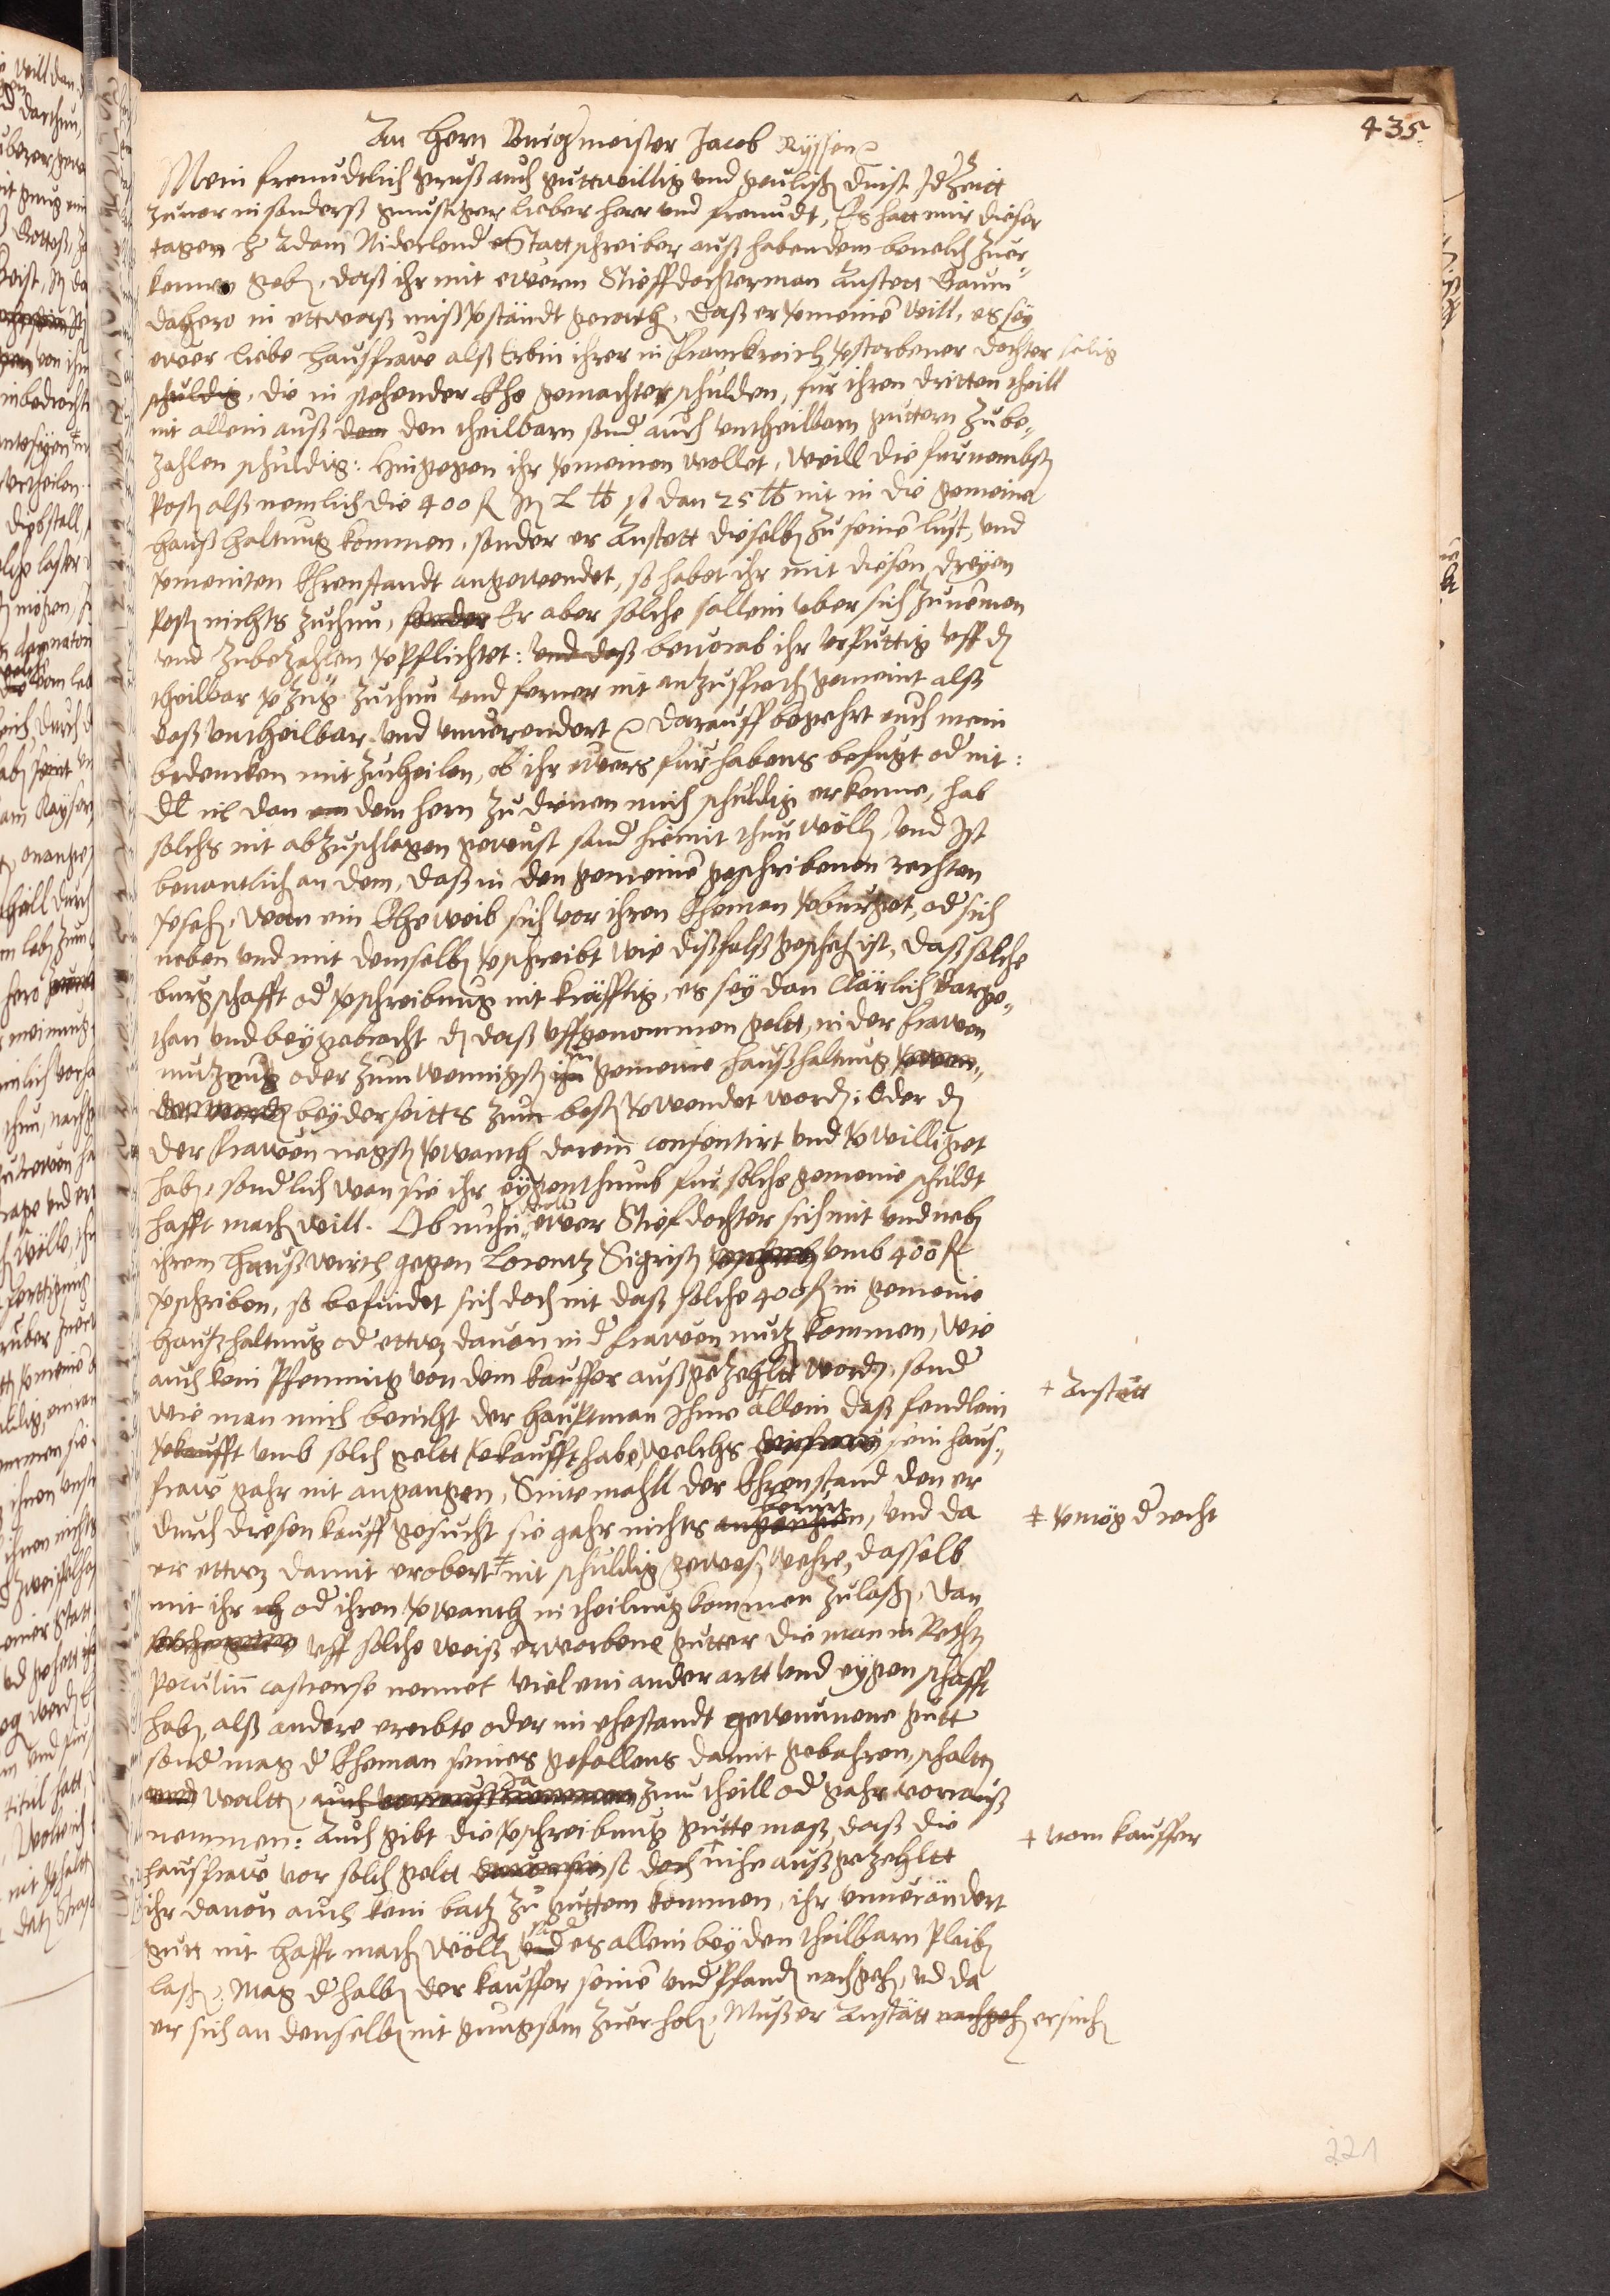 435.
An Hern Burgmeister Jacob Ryssen
Mein freundtlich gruß auch guttwillig und geulißn dinst Jdzeitt
zuuor insonderß gunstiger lieber Herr und freundt, Es hatt mir dieser
tagen H Adam Niderlend Stattschreiber auß habendem beuelch zuer-
kennen gebn, daß ihr mit ewerm Stieffdochterman Anstett Baum
dahero in ettwaß mißverständt gerathn, daß er vermeine will, es sey
ewer liebe haußfraw alß Erbin ihrer in Franckreich verstorbener dochter selig
schuldig, die in stehender Ehe gemachter schulden, für ihren dritten theill
nit allein auß dem den theilbarn sond auch untheilbarn guttern zube-
zahlen schuldig: Hingegen ihr vermeinen wollet, Weill die furnembstn
Postn alß nemlich die 400 fl Jtn L lb so dan 25 lb nit in die gemeine
haußhaltung kommen, sonder er Anstett dieselbn zu seinē lust, und
vermeinten Ehrenstandt angewendet, so habet ihr mit diesen dreyen
Postn nichts zuthun, sonder Er aber solche allein uber sich zunemen
und zubezahlen verpflichtet: und daß beuorab ihr urputtig uff dz
theilbar verzug zuthun und ferner nit anzusprechn gemeint alß
daß untheilbar und unuerendert darauff begehrt auch mein
bedencken mitzutheilen, ob ihr ewers fürhabens befugt od nit:
Dt ich dan dem hern zu dienen mich schuldig erkenne, hab
solchs nit abzuschlagen gewust sond hiemit thun wölln, Und Jst
benantlich an dem, daß in den gemeinē geschribenen rechten
versehn, wan ein Eheweib sich vor ihren Eheman verburget, od sich
neben und mit demselbn verschreibt wie dißfalß geschehn ist, daß solche
burgschafft od verschreibung nit kräfftig, es sey dan klärlich darge-
than und beygebracht dz daß uffgenommen geltt, in der frawen
nutzung oder zum wenigstn in gemeine haußhaltung verwen-
det wordn beyderseitts zum bestn verwendet wordn; Oder dz
der frawen negstn verwanthn darein consentirt und verwilliget
habn, sondlich wan sie ihr eygenthumb für solche gemeine schuldt
hafft machn will. Ob nuhn woll ewer Stiefdochter sich mit und nebn
ihrem Haußwirth gegen Lorentz Sigristn verschribn umb 400 fl
verschriben, so befindet sich doch nit daß solche 400 fl in gemeine
haußhaltung od ettwz dauon in d frawen nutz kommen, Wie
auch kein Pfenning von dem kauffer außgezehltt wordn, sond
wie man mich bericht der Hauptman Jhme allein daß fendlein + Anstätt
verkaufft umb solch geltt verkaufft habe, welchs die fraw sein hauß-
fraw gahr nit angangen, Sintemahll der Ehrenstand den er
durch diesen kauff gesucht sie gahr nichts angangen berürt, und da ‡ vermög d recht
er ettwz damit erobert ‡ nit schuldig gewesn wehre, dasselb
mit ihr od ihren verwanthn in theilung kommen zulaßn, dan
solche gütter uff solche weiß erworbene gütter die man in Rechtn
peculiū castrense nennet viel ein ander artt und eygenschafft
habn, alß andere ererbte oder im ehestandt gewunnene gutt
sond mag d Eheman seines gefallens damit gebahren, schaltn
und waltn, auch vorauß nemmen zum theill od gahr vorauß
nemmen: Auch gibt die verschreibung gutte maß, daß die + vom kauffer
haußfraw vor solch geltt so doch nihe außgezehltt
ihr dauon auch kein batz zu guttem kommen, ihr unuerändert
gutt nit hafft machn wölln sond es allein bey den theilbarn pleibn
laßn; Mag dhalbn der kauffer seinē undpfandn nachgehn, ud da
er sich an denselbn nit gnugsam zuerholn, Muß er Anstätt nachgehn ersuchn
221